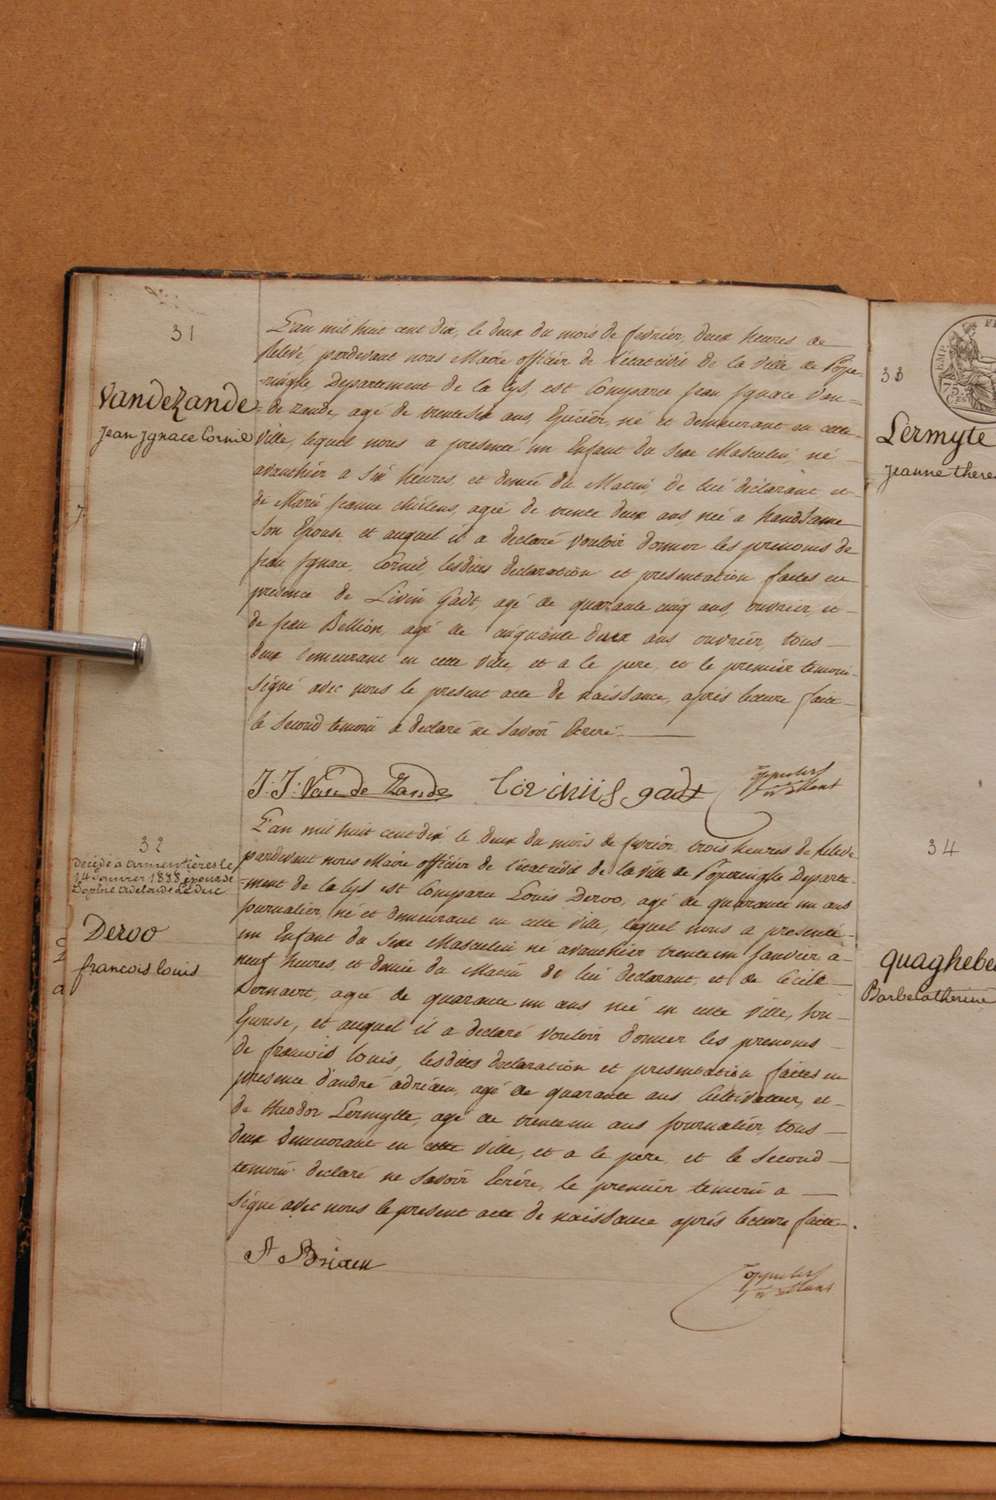 31
VandeZande
Jean Jgnace Cornil
L'an mil huit cent dix, le deux du mois de fevrier, deux heures de
relevé, pardevant nous Maire officier de l'état civil de la ville de Pope-
ringhe Departement de la Lys, est Comparu Jean Jgnace Van-
de Zande, agé de trente six ans, Epicier, né et demeurant en cette
ville, lequel nous a presenté un Enfant du Sexe Masculin, né
avanthier a Six heures, et demie du Matin, de lui déclarant, et
de Marie Jeanne agée de trente deux ans née a handsame
Son Epouse, et auquel il a declaré Vouloir donner les prenoms de
Jean Jgnace, Cornil lesdites declaration et presentation faites en
presence de Livin Gadt, agé de quarante cinq ans, ouvrier et
de Jean Bellion, agé de cinquante deux ans ouvrier, tous
deux demeurant en cette ville, et a le pere, et le premier temoin
signé avec nous le present acte de naissance, après lecture faite
le Second temoin a declaré ne Savoir Ecrire.
J: J: Van de Zande gadt
32
Decédé à Armentières le
14 Janvier 1888 époux de
Sophie Adelaide Leduc
Dervo
francois louis
L'an mil huit cent dix le deux du mois de fevrier, trois heures de relevé
pardevant nous Maire officier de l'état civil de la ville de Poperinghe Departe-
ment de la Lys est Comparu Louis Dervo, agé de quarante un ans
journalier, né et demeurant en cette ville, lequel nous a presenté
un Enfant du Sexe Masculin né avanthier trente un Janvier à
neuf heures, et demie du Matin de lui declarant, et de Cécile
Dornaert, agée de quarante un ans née en cette ville, Son
Epouse, et auquel il a declaré Vouloir donner les prenoms
de francois louis, lesdites declaration et presentation faites en
presence d'andré adriaen, agé de quarante ans Cultivateur, et
de theodor Lermytte, agé de trente un ans journalier, tous
deux demeurant en cette ville, et a le pere, et le second
temoin declaré ne Savoir Ecrire, le premier temoin a
signé avec nous le present acte de naissance après lecture faite.
33
Lermyte
Jeanne there
34
quaghebe
Barbe Catherine